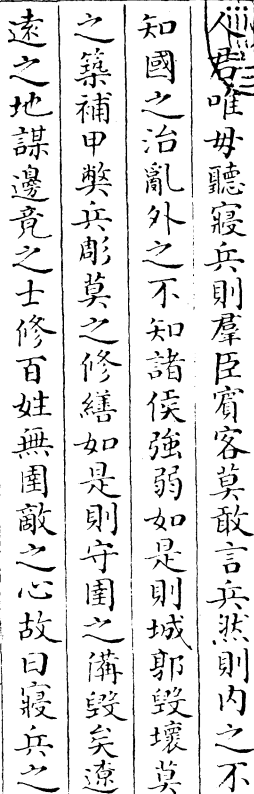 人君唯毋聽寢兵則羣臣賔客莫敢言兵然則内之不
知國之治亂外之不知諸侯強弱如是則城郭毀壞莫
之築補甲弊兵彫莫之修繕如是則守圉之備毀矣遼
遠之地謀邊竟之士修百姓無圉敵之心故曰寢兵之